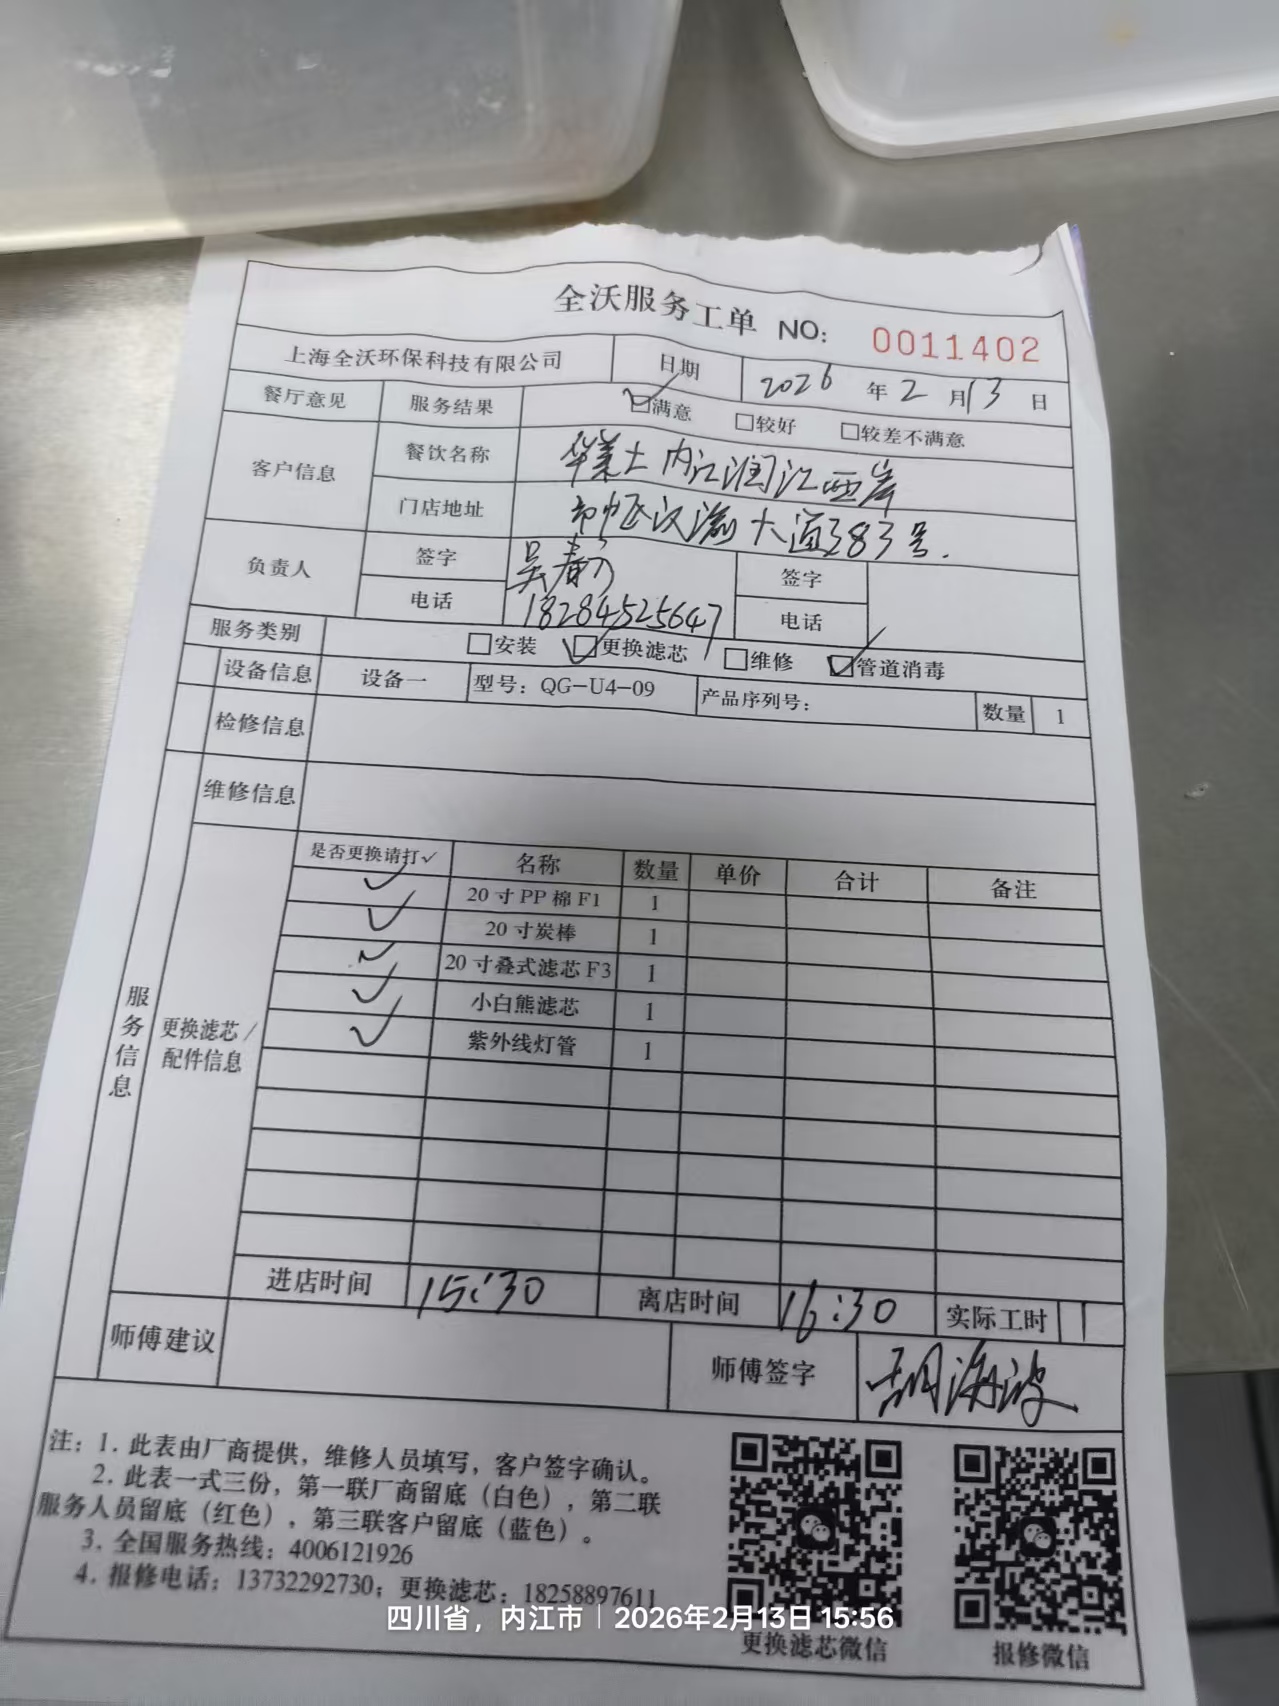 全沃服务工单 NO: 0011402
上海全沃环保科技有限公司 日期 2026 年 2 月 13 日
餐厅意见 服务结果 ☑满意 □较好 □较差不满意
客户信息 餐饮名称 华莱士内江润江西岸
门店地址 市中区汉渝大道383号.
负责人 签字 吴 签字
电话 18284525647 电话
服务类别 □安装 ☑更换滤芯 □维修 ☑管道消毒
设备信息 设备一 型号: QG-U4-09 产品序列号: 数量 1
检修信息
维修信息
服务信息
更换滤芯/
配件信息
是否更换请打✓ 名称 数量 单价 合计 备注
✓ 20寸PP棉F1 1
✓ 20寸炭棒 1
✓ 20寸叠式滤芯F3 1
✓ 小白熊滤芯 1
✓ 紫外线灯管 1
进店时间 15:30 离店时间 16:30 实际工时 1
师傅建议 师傅签字 胡海波
注: 1. 此表由厂商提供, 维修人员填写, 客户签字确认。
2. 此表一式三份, 第一联厂商留底 (白色), 第二联
服务人员留底 (红色), 第三联客户留底 (蓝色)。
3. 全国服务热线: 4006121926
4. 报修电话: 13732292730; 更换滤芯: 18258897611
更换滤芯微信 报修微信
四川省, 内江市 | 2026年2月13日 15:56